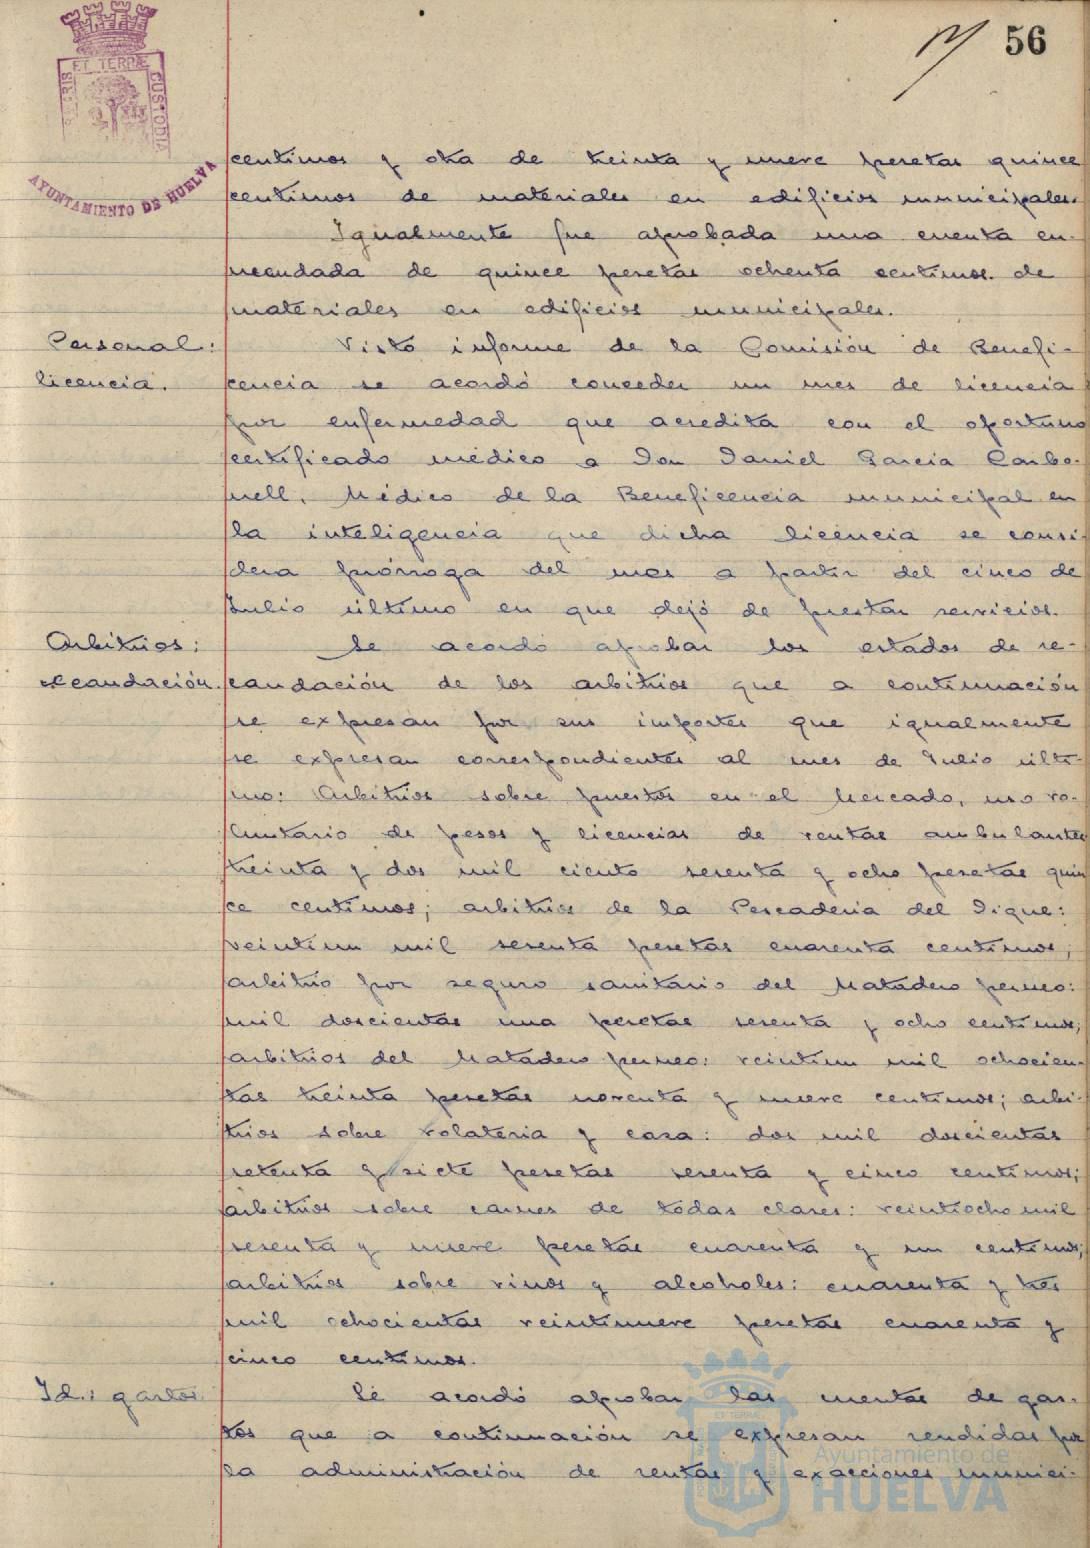 56
ET TERRÆ
CUSTODIA
AYUNTAMIENTO DE HUELVA
centimos y otra de treinta y nueve pesetas quince
centimos de materiales en edificios municipales.
Igualmente fue aprobada una cuenta en-
de quince pesetas ochenta centimos de
materiales en edificios municipales.
Personal: Visto informe de la Comisión de Benefi-
licencia. cencia se acordó conceder un mes de licencia
por enfermedad que acredita con el oportuno
certificado médico a Don Daniel Garcia Carbo-
nell, Médico de la Beneficencia municipal en
la inteligencia que dicha licencia se consi-
dera prórroga del mes a partir del cinco de
Julio último en que dejó de prestar servicios.
Arbitrios: Se acordó aprobar los estados de re-
recaudación. caudación de los arbitrios que a continuación
se expresan por sus importes que igualmente
se expresan correspondientes al mes de Julio últi-
mo: Arbitrios sobre puestos en el Mercado, uso vo-
luntario de pesos y licencias de ventas ambulantes
treinta y dos mil ciento sesenta y ocho pesetas quin
ce centimos; arbitrios de la Pescaderia del Dique:
veintiun mil sesenta pesetas cuarenta centimos;
arbitrio por seguro sanitario del Matadero porcino:
mil doscientas una pesetas sesenta y ocho centimos;
arbitrios del Matadero porcino: veintiun mil ochocien-
tas treinta pesetas noventa y nueve centimos; arbi-
trios sobre volateria y caza: dos mil doscientas
setenta y siete pesetas sesenta y cinco centimos;
arbitrios sobre carnes de todas clases: veintiocho mil
sesenta y nueve pesetas cuarenta y un centimos;
arbitrios sobre vinos y alcoholes: cuarenta y tres
mil ochocientas veintinueve pesetas cuarenta y
cinco centimos.
Id.: gastos. Se acordó aprobar las cuentas de gas-
tos que a continuación se expresan rendidas por
la administración de rentas y exacciones munici-
Ayuntamiento de
HUELVA